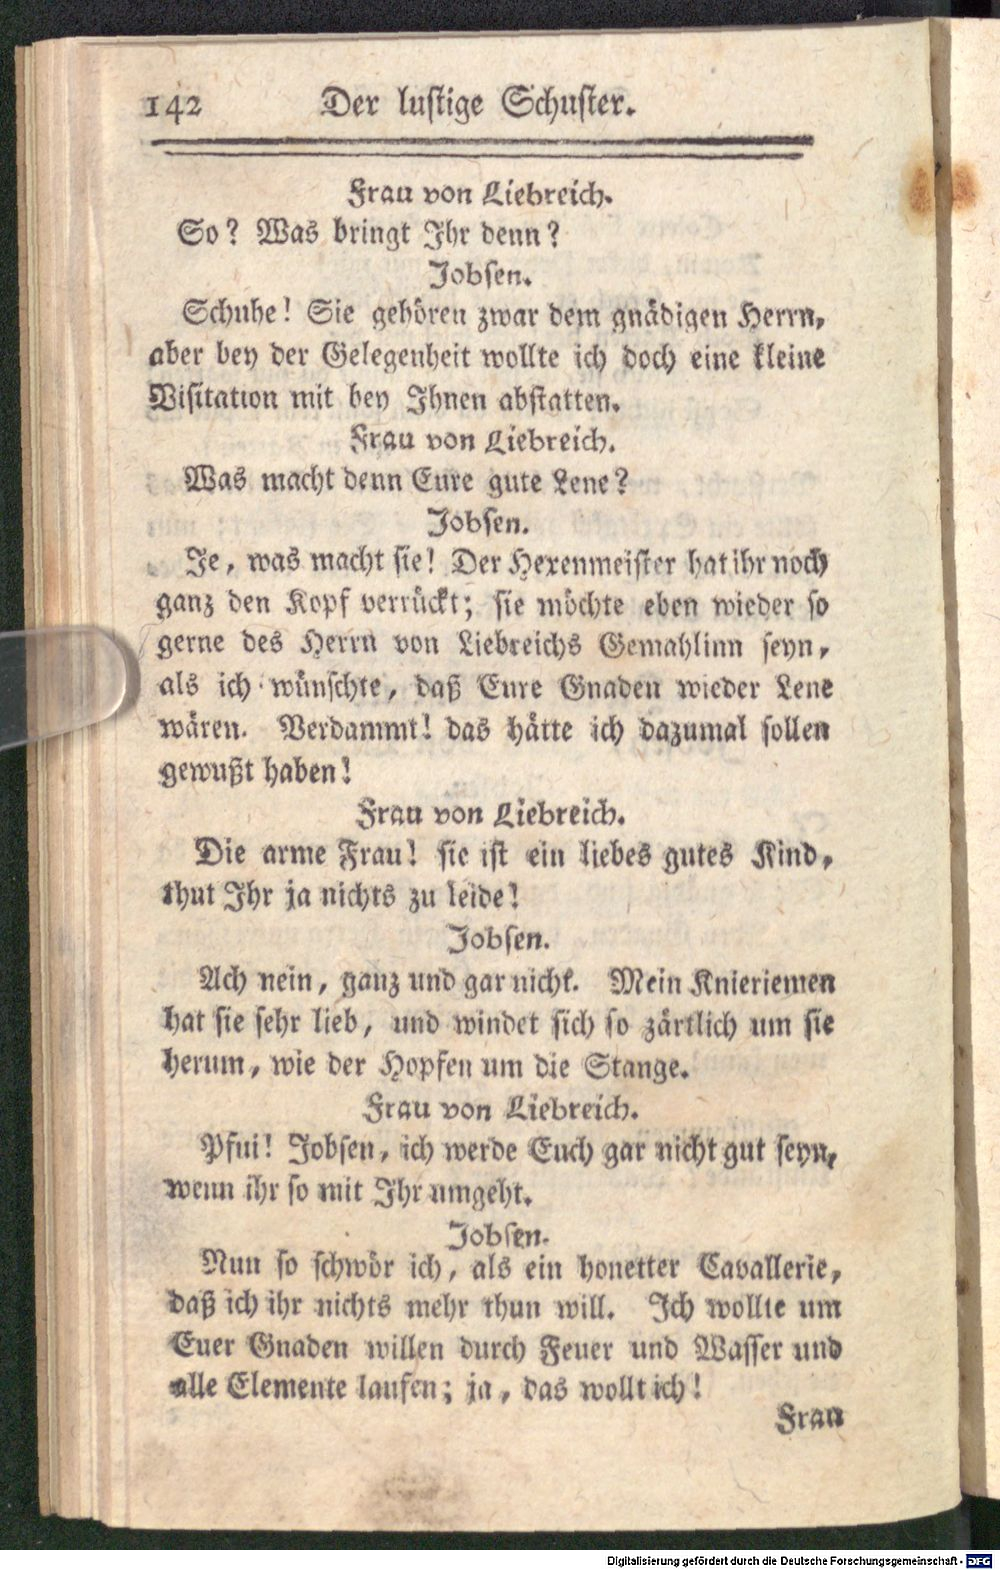 142 Der lustige Schuster.
Frau von Liebreich.
So? Was bringt Ihr denn?
Jobsen.
Schuhe! Sie gehören zwar dem gnädigen Herrn,
aber bey der Gelegenheit wollte ich doch eine kleine
Visitation mit bey Ihnen abstatten.
Frau von Liebreich.
Was macht denn Eure gute Lene?
Jobsen.
Je, was macht sie! Der Hexenmeister hat ihr noch
ganz den Kopf verrückt; sie möchte eben wieder so
gerne des Herrn von Liebreichs Gemahlinn seyn,
als ich wünschte, daß Eure Gnaden wieder Lene
wären. Verdammt! das hätte ich dazumal sollen
gewußt haben!
Frau von Liebreich.
Die arme Frau! sie ist ein liebes gutes Kind,
thut Ihr ja nichts zu leide!
Jobsen.
Ach nein, ganz und gar nicht. Mein Knieriemen
hat sie sehr lieb, und windet sich so zärtlich um sie
herum, wie der Hopfen um die Stange.
Frau von Liebreich.
Pfui! Jobsen, ich werde Euch gar nicht gut seyn,
wenn ihr so mit Ihr umgeht.
Jobsen.
Nun so schwör ich, als ein honetter Cavallerie,
daß ich ihr nichts mehr thun will. Ich wollte um
Euer Gnaden willen durch Feuer und Wasser und
alle Elemente laufen; ja, das wollt ich!
Frau
Digitalisierung gefördert durch die Deutsche Forschungsgemeinschaft - DFG